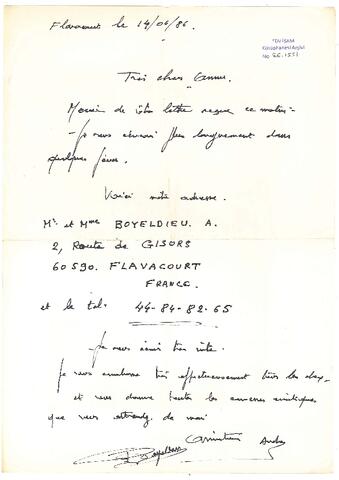 Flavacourt le 14/06/86.
TDV İSAM
Kütüphanesi Arşivi
No
Très chers
Merci de votre lettre reçue ce matin :-
- Je vous écrirai plus longuement dans
quelques jours.
Voici notre adresse.
Mr et Mme BOYELDIEU. A.
2, Route de GISORS
60590. FLAVACOURT
FRANCE.
et le tel: 44-84-82-65
Je vous écris très vite.
Je vous embrasse très affectueusement tous les deux
et vous donne toutes les
que vous attendez de moi